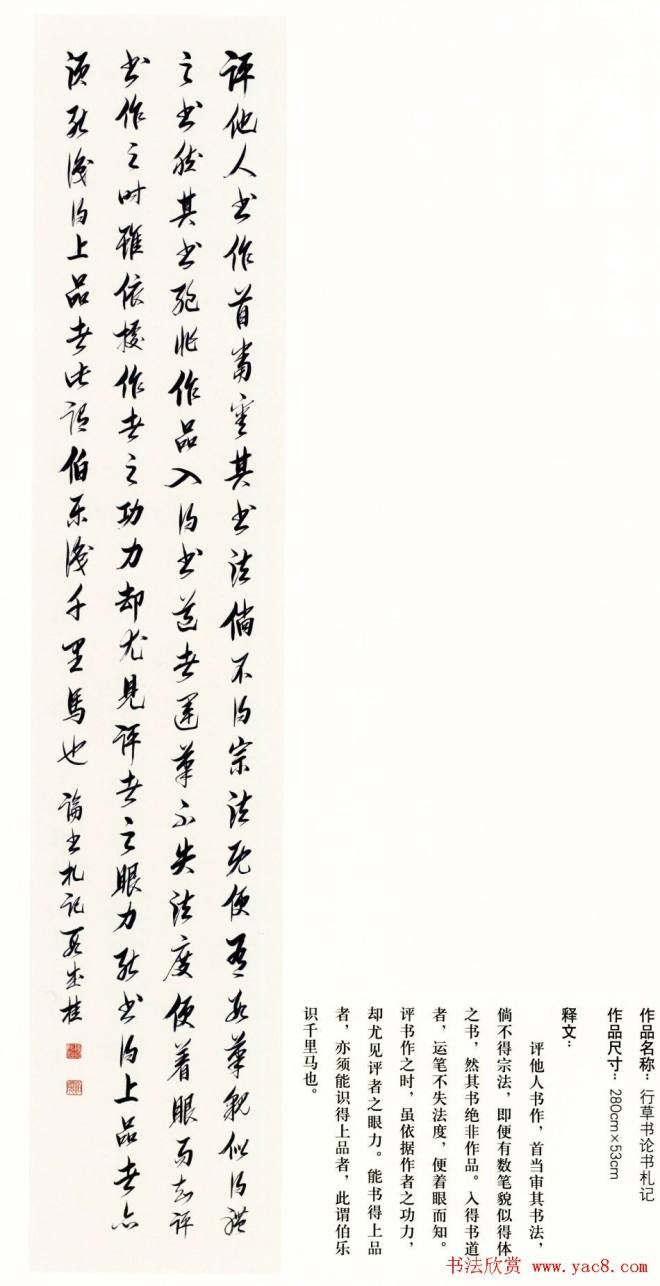 作品名称：行草书论书札记
作品尺寸：280cm×53cm
释文：
评他人书作，首当审其书法，
倘不得宗法，即便有数笔貌似得体
之书，然其书绝非作品。入得书道
者，运笔不失法度，便着眼而知。
评书作之时，虽依据作者之功力，
却尤见评者之眼力。能书得上品
者，亦须能识得上品者，此谓伯乐
识千里马也。
評他人書作首當審其書法倘不得宗法既便有數筆貌似得體
之書然其書絕非作品入得書道者運筆不失法度便着眼而知評
書作之時雖依據作者之功力却尤見評者之眼力能書得上品者亦
須能識得上品者此謂伯樂識千里馬也 論書札記 段成桂
书法欣赏 www.yac8.com